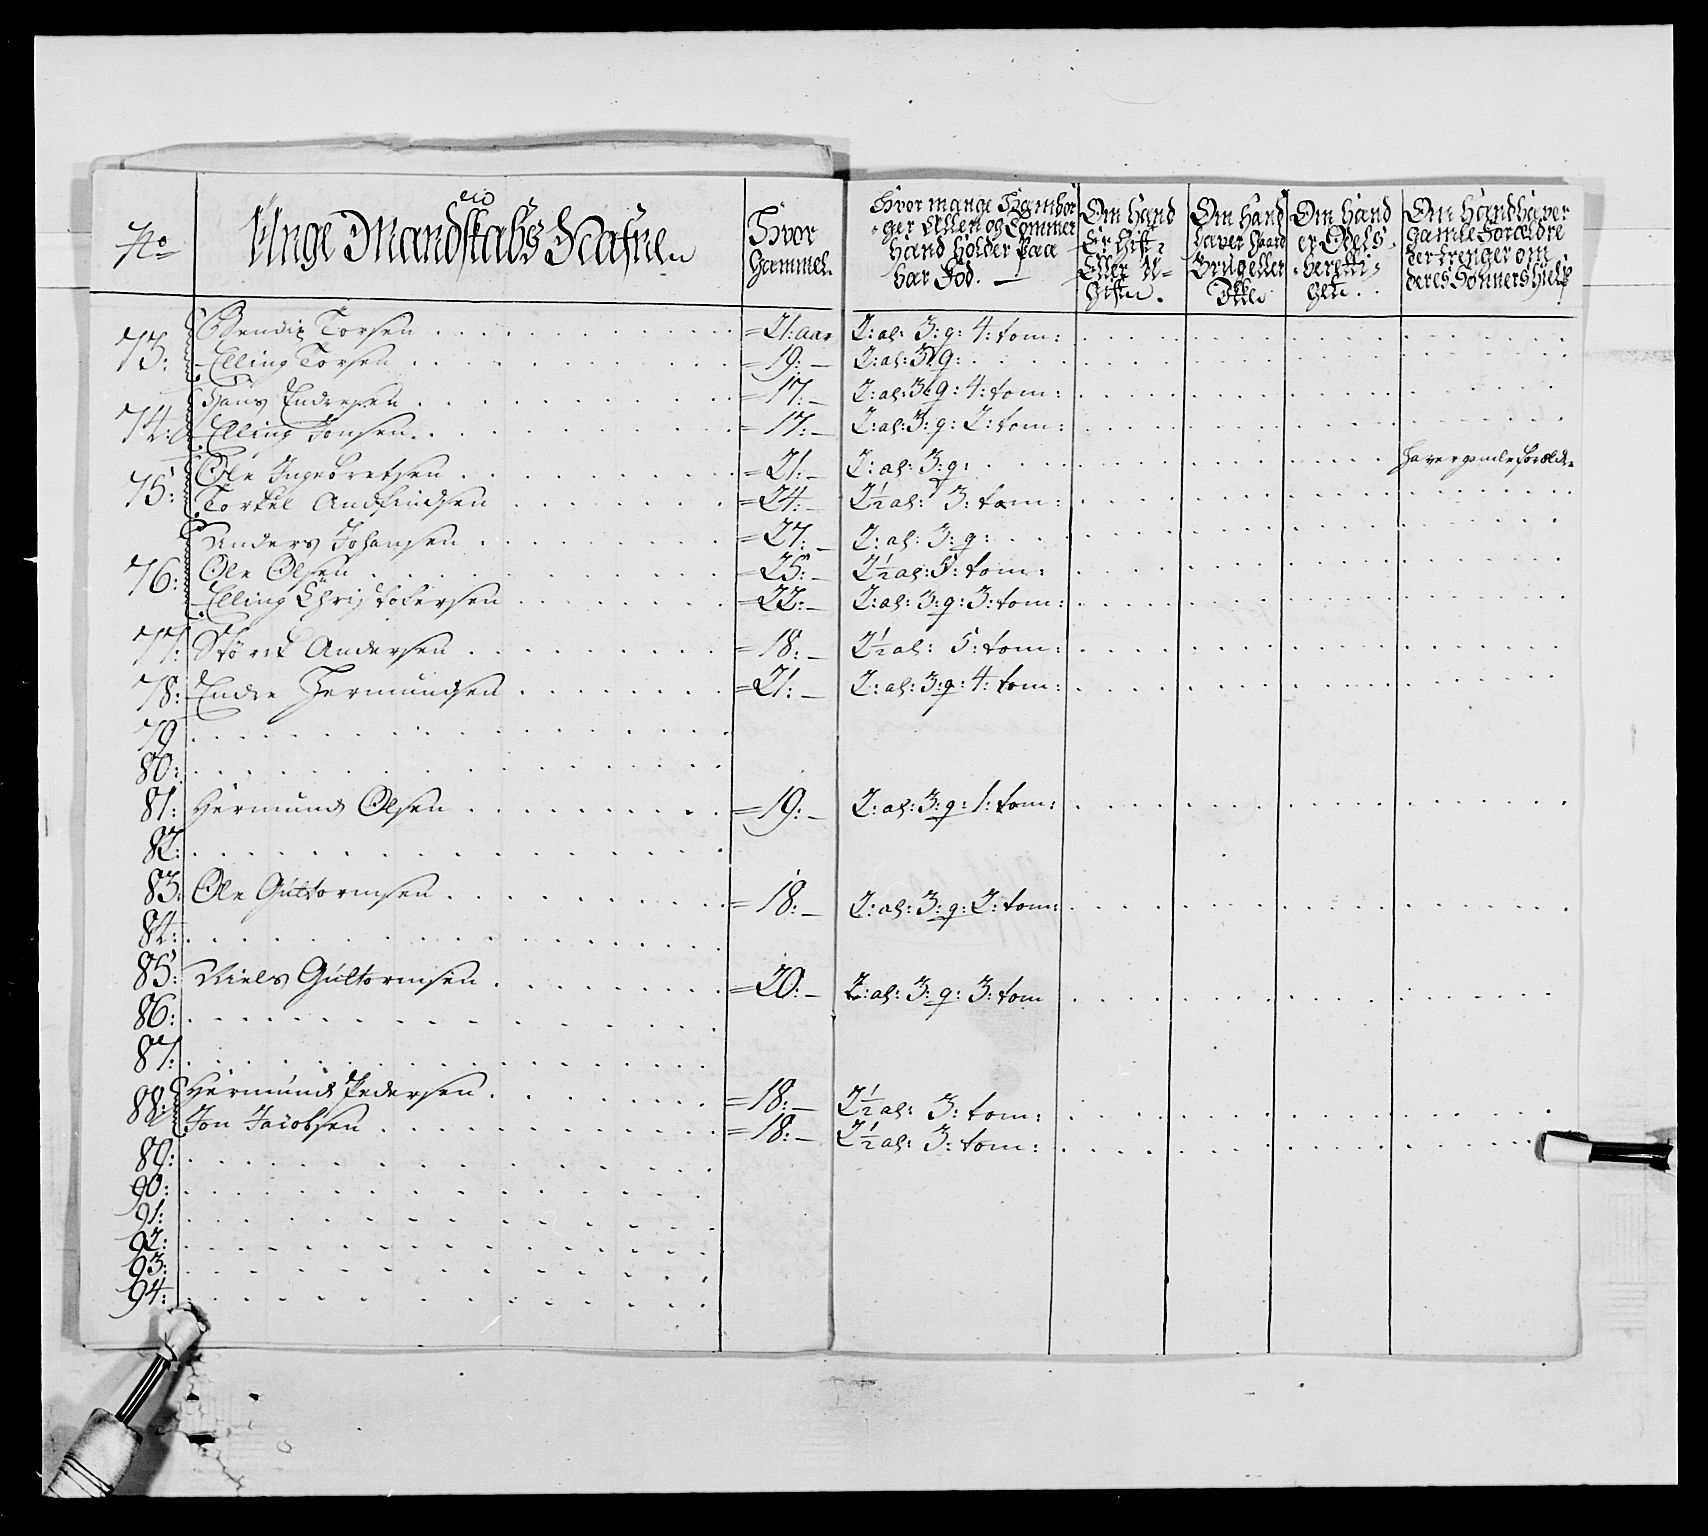 No
Unge Mandskabs Nafne
Hvor
Gammel.
Hvor mange
ger Allen og Tommer
Hand Holder Paa
bar Fod. —
Om Hand
Er Gift
Eller U-
Gift.
Om Hand
haver Gaard
Brug eller
Ikke
Om Hand
er Odels
beretti-
get.
Om Hand haver
gamle Forældre
der trenger om
deres Sønners Hielp
73: Bendix Torsen = 21: aar 2: al: 3: q: 4: tom:
Elling Torsen = 19: — 2: al: 3 q:
74: Hans Endresen = 17: — 2: al: 3: q: 4: tom:
Elling Jonsen = 17: — 2: al: 3: q: 2: tom:
75: Ole Ingebretsen = 21: — 2: al: 3: q: haver gamle forældre
Torkel Andfindsen = 24: — 2½ al: 3: tom:
76: Anders Johansen = 27: — 2: al: 3: q:
Ole Olsen = 25: — 2½ al: 5: tom:
Elling Christofersen = 22: — 2: al: 3: q: 3: tom:
77: Størk Andersen = 18: — 2½ al: 5: tom:
78: Endre Hermundsen = 21: — 2: al: 3: q: 4: tom:
79
80:
81: Hermund Olsen = 19: — 2: al: 3: q: 1: tom:
82:
83: Ole Guttormsen = 18: — 2: al: 3: q: 2: tom:
84:
85: Niels Guttormsen = 20: — 2: al: 3: q: 3: tom
86:
87:
88: Hermund Pedersen = 18: — 2½ al: 3: tom:
Jon Jacobsen = 18: — 2½ al: 3: tom:
89:
90:
91:
92:
93:
94: